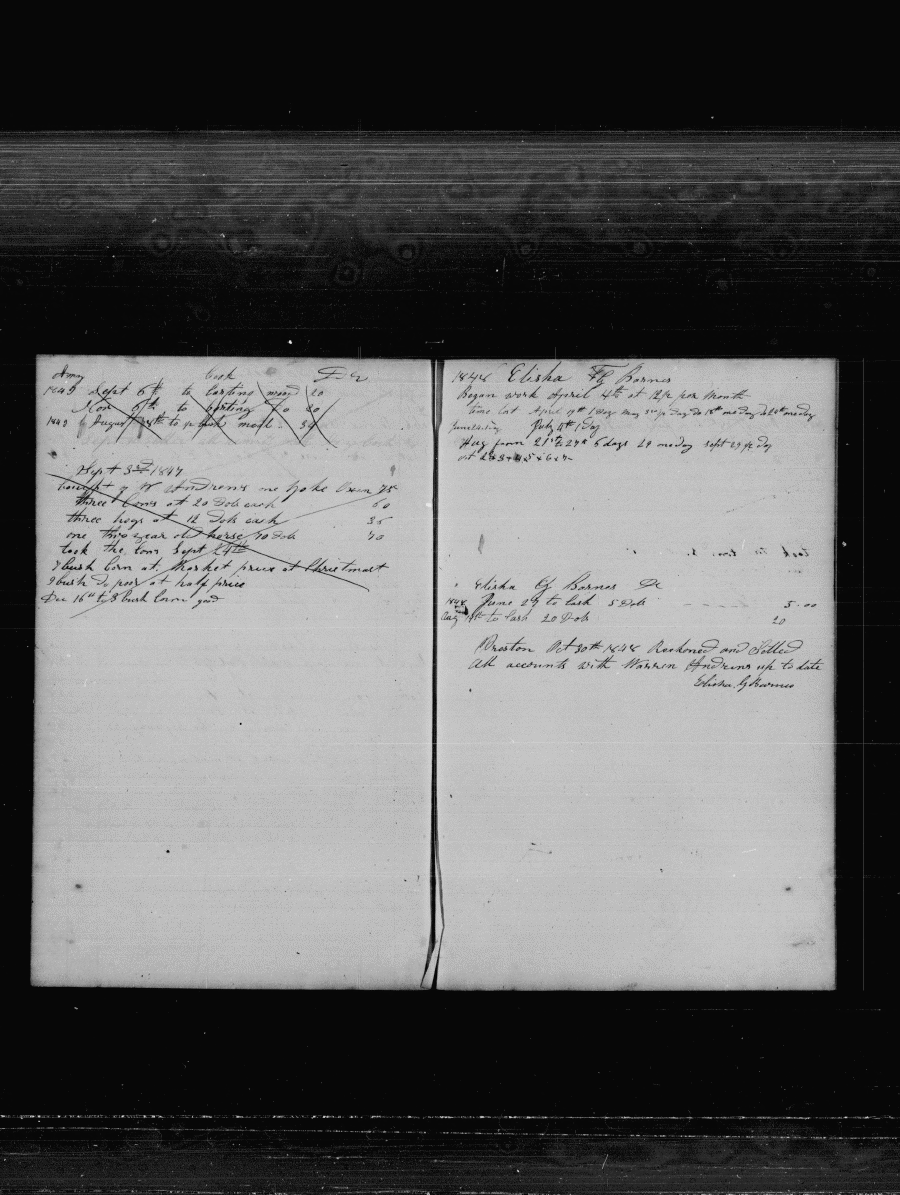 Cook Dr
1843 Sept 6th to Carting 20
Nov 6th to Carting 20
1843 August to meal 34
Sept 3d 1847
bought of W Andrews one yoke Oxen 75
three Cows at 20 Dols each 60
three hogs at 12 Dols each 35
one two year old horse 70 Dols 70
took the Corn Sept 24th
bush Corn at Market price at Christmast
9 bush Do poor at half price
Dec 16th to 8 bush Corn good
1848 Elisha G Barnes
Began work April 4th at 12 per Month
time lost April 17th 1 day May Day Do 18th one day one day
July 4th 1 day
Aug from 21st to 27th 6 days 29 one day Sept 29 day
Oct 2 3 4 5 6 7
Elisha G Barnes Dr
1848 June 27 to Cash 5 Dols 5.00
Aug to Cash 20 Dols 20
Preston Oct 30th 1848 Reckoned and Setled
All accounts with Warren Andrews up to date
Elisha G Barnes